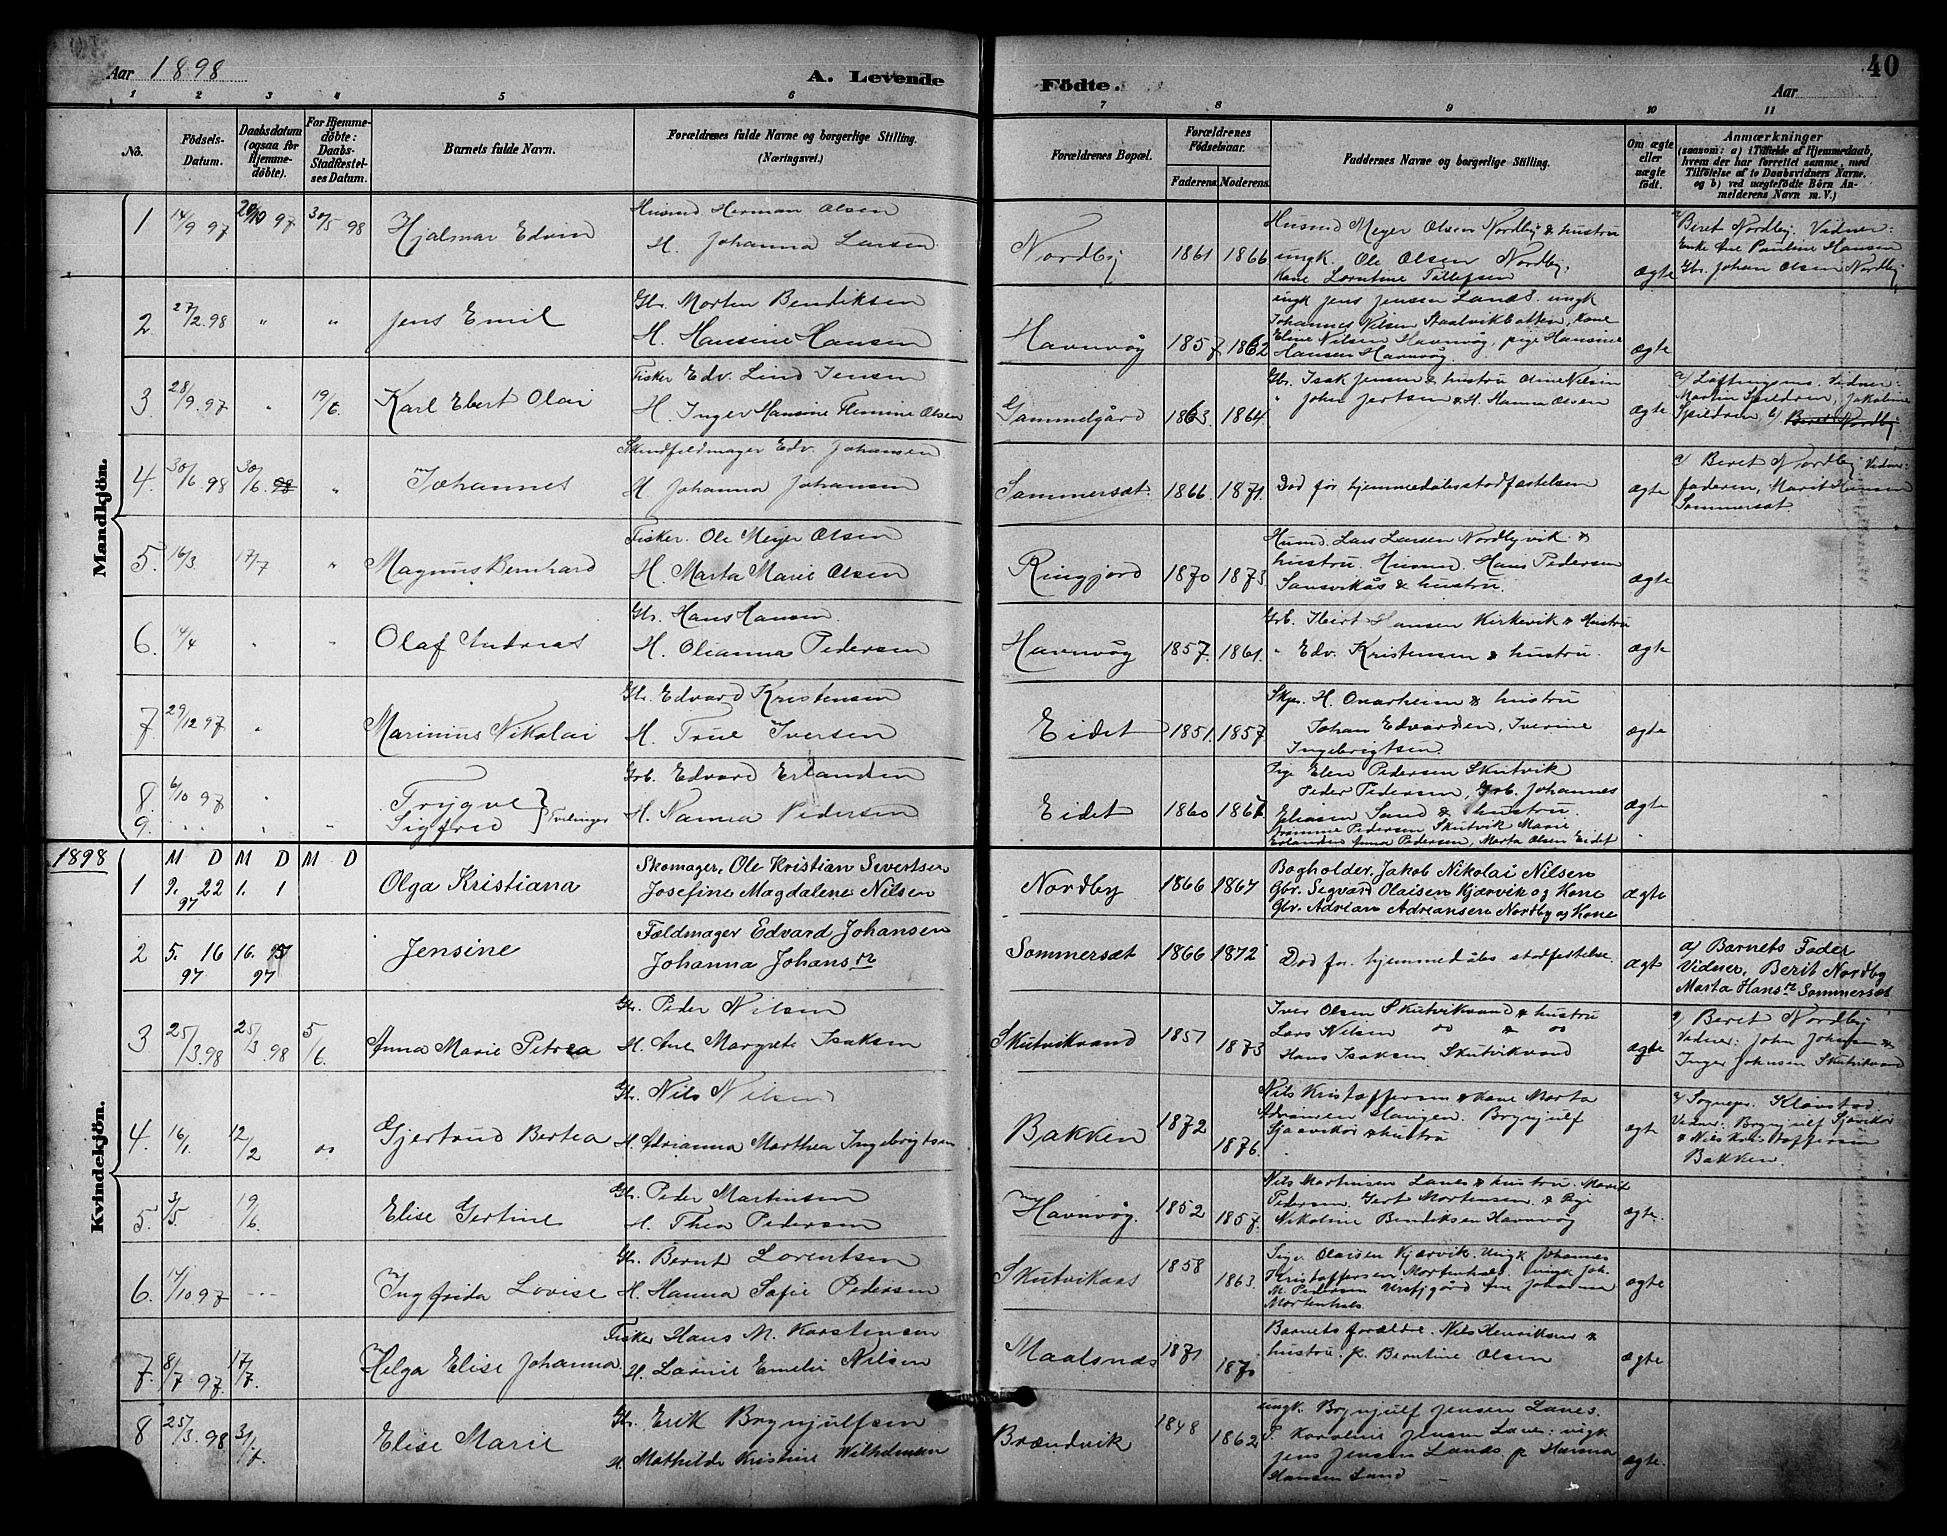 Aar 1898
A. Levende
Födte.
Aar
40
1 2 3 4 5 6 7 8 9 10 11
No.
Födsels-
Datum.
Daabsdatum
(ogsaa for
Hjemme-
döbte).
For Hjemme-
döbte:
Daabs-
Stadfæstel-
ses Datum.
Barnets fulde Navn.
Forældrenes fulde Navne og borgerlige Stilling.
(Næringsvei.)
Forældrenes Bopæl.
Forældrenes
Födselsaar.
Faderens. Moderens.
Faddernes Navne og borgerlige Stilling.
Om ægte
eller
uægte
født.
Anmærkninger
(saasom: a) i Tilfælde af Hjemmedaab,
hvem der har forrettet samme, med
Tilföielse af to Daabsvidners Navne.
og b) ved uægtefödte Börn An-
melderens Navn m. V.)
Mandkjön.
1 14/9 97 20/10 97 30/5 98 Hjalmar Edvin
Husmd Herman Olsen
H. Johanna Larsen
Nordby 1861 1866
Husmd Meyer Olsen Nordby & hustru
ungk. Ole Olsen Nordby.
Kane Lorntine Tollefsen
ægte
a/ Beret Nordby. Vidner:
Enke Ane Pauline Hansen
Gbr. Johan Olsen Nordby
2. 27/2.98 " " Jens Emil
Gbr Morten Bendiksen
H. Hansine Hansen
Havnvåg 1857 1862
ungk Jens Jenssen Lanes. ungk
Johannes Nilsen Staalvikbotten, Kone
Eline Nilsen Havnvåg, pige Hansine
Hansen Havnvåg.
ægte
3. 28/9.97 " 19/6. Karl Ebert Olai
Fisker Edv. Lind Jensen
H. Inger Hansine Flemine Olsen
Gammelgård 1863 1864
Gbr. Isak Jensen & hustru Oline Nilsen
" John Jertsen & H. Hanna Olsen
ægte
Martin Spildren, Jakobine
Spildren b/ Beret Nordby
4. 30/6 98 30/6. 98 " Johannes
Skindfeldmager Edv. Johansen
H Johanna Johansen
Sommersæt. 1866. 1871.
Död för hjemmedåbsstadfæstelsen
ægte
a/ Beret Nordby Vidner:
faderen, Marit Hansen
Sommersæt.
5. 16/3. 17/7 " Magnus Bernhard
Fisker. Ole Meyer Olsen
H. Marta Marie Olsen
Ringjord 1870 1873
Husmd. Lars Larsen Nordbyvik &
hustru. Husmd. Hans Pedersen
Sansvikås & hustru.
ægte
6. 14/4 " " Olaf Andreas
Gbr. Hans Hansen
H. Olianna Pedersen
Havnvåg 1857. 1861.
Grb. Ibert Hansen Kirkevik & Hustru
" Edv. Kristensen & hustru.
ægte
7 29/12 97 " Marinius Nikolai
Gbr. Edvard Kristensen
H. Trine Iversen
Eidet 1851. 1857
Skpr. H. Onarheim & hustru
Johan Edvardsen, Iverine
Ingebrigtsen.
ægte
8. 6/10 97 " Trygve
9. " " " Sigfred } Tvilinger
Grb. Edvard Erlandsen
H. Nanna Pedersen
Eidet 1860 1867
Pige Elen Pedersen Skutvik
Peder Pedersen, Grb. Johannes
Eliasen Sand & hustru.
Pedersen Skutvik Marie
Erlandsen Anna Pedersen, Marta Olsen Eidet
ægte
1898
Kvindekjön.
M D M D M D
1 9. 22 97 1. 1 Olga Kristiana
Skomager. Ole Kristian Sivertsen
Josefine Magdalene Nilsen
Nordby 1866 1867
Bogholder. Jakob Nikolai Nilsen
Gbr. Segvard Olaisen Kjærvik og Kone
Gbr. Adrian Adriansen Nordby og Kone
ægte
2 5. 16 97 16. 97 Jensine
Fældmager Edvard Johansen
Johanna Johansn
Sommersæt 1866 1872
Död for hjemmedåbs stadfestelse.
ægt
a) Barnets Fader
Vidner, Berit Nordby
Marta Hansn Sommersæt
3 25/3.98 25/3.98 5/6. Anna Marie Petrea
Gbr. Peder Nilsen
H. Ane Margrete Isaksen
Skutvikvand 1851 1873
Iver Olsen Skutvikvand & hustru
Lars Nilsen
Hans Isaksen Skutvikvand
ægte
a/ Beret Nordby
Vidner: John Johnsen &
Inger Johnsen Skutvikvand
4. 16/1. 12/2 Gjertrud Bertea
Gbr. Nils Nilsen
H. Adrianna Marthea Ingebrigtsen
Bakken 1872 1876.
Nils Kristoffersen & kane Marta
Adriansen Haugen. Brynjulf
Sjåvikør & hustru
ægte
a/ Sognepr. Klåvstad
Vidner: Brynjulf Sjåvikør
& Nils Kristoffersen
Bakken.
5. 3/5. 19/6. Elise Gertine
Gbr. Peder Martinsen
H. Thea Pedersen
Havnvåg. 1852 1857.
Nils Martinsen Lanes & hustru. Marit
Pedersen. Gert Mortensen. & Pige
Nikoline Bendiksen Havnvåg
ægte.
6. 14/10 97 Ingfrida Lovise
Gbr. Bernt Lorentsen
H. Hanna Sofie Pedersen
Skutvikaas 1858 1863.
Sige Olaisen Kjærvik. Ungk Johannes
Kristoffersen. Mortenhals ungk Joh.
M. Pedersen Ursfjgård Ane Johanna
Mortenhals
ægte
7. 8/7 97 17/7. Helga Elise Johanna
Fisker Hans M. Karstensen
H. Lavine Emelie Nilsen
Maalsnæs 1871 1870
Barnets forældre. Nils Henriksen &
hustru. p. Berntine Olsen
ægte
8 25/3.98 31/7. Elise Marie
Gbr. Erik Brynjulfsen
H. Mathilde Kristine Wilhelmsen
Brændvik 1848 1862
ungk. Brynjulf Jensen Lanes.
P. Karoline Jensen Lane: ungk
Jens Jensen Lanes p Hansina
Hansen Sand
ægte.